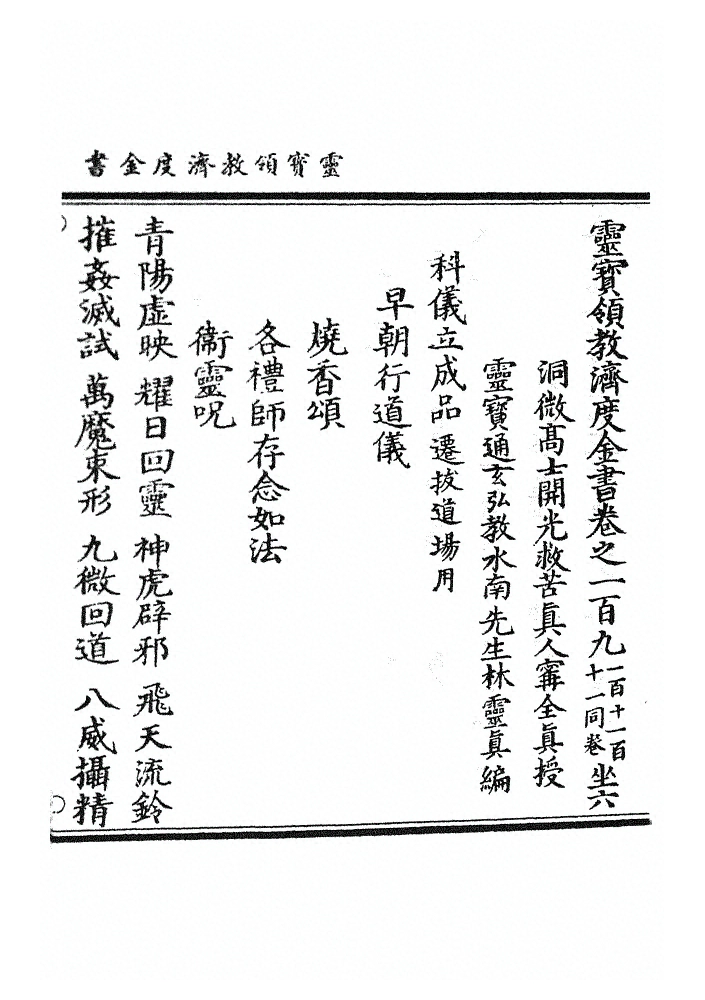 靈寶領教濟度金書
靈寶領教濟度金書卷之一百九一百十一百十一同卷坐六
洞微高士開光救苦眞人甯全眞授
靈寶通玄弘教水南先生林靈眞編
科儀立成品遷拔道場用
早朝行道儀
燒香頌
各禮師存念如法
衞靈呪
青陽虛映 耀日回靈 神虎辟邪 飛天流鈴
摧姦滅試 萬魔束形 九微回道 八威攝精